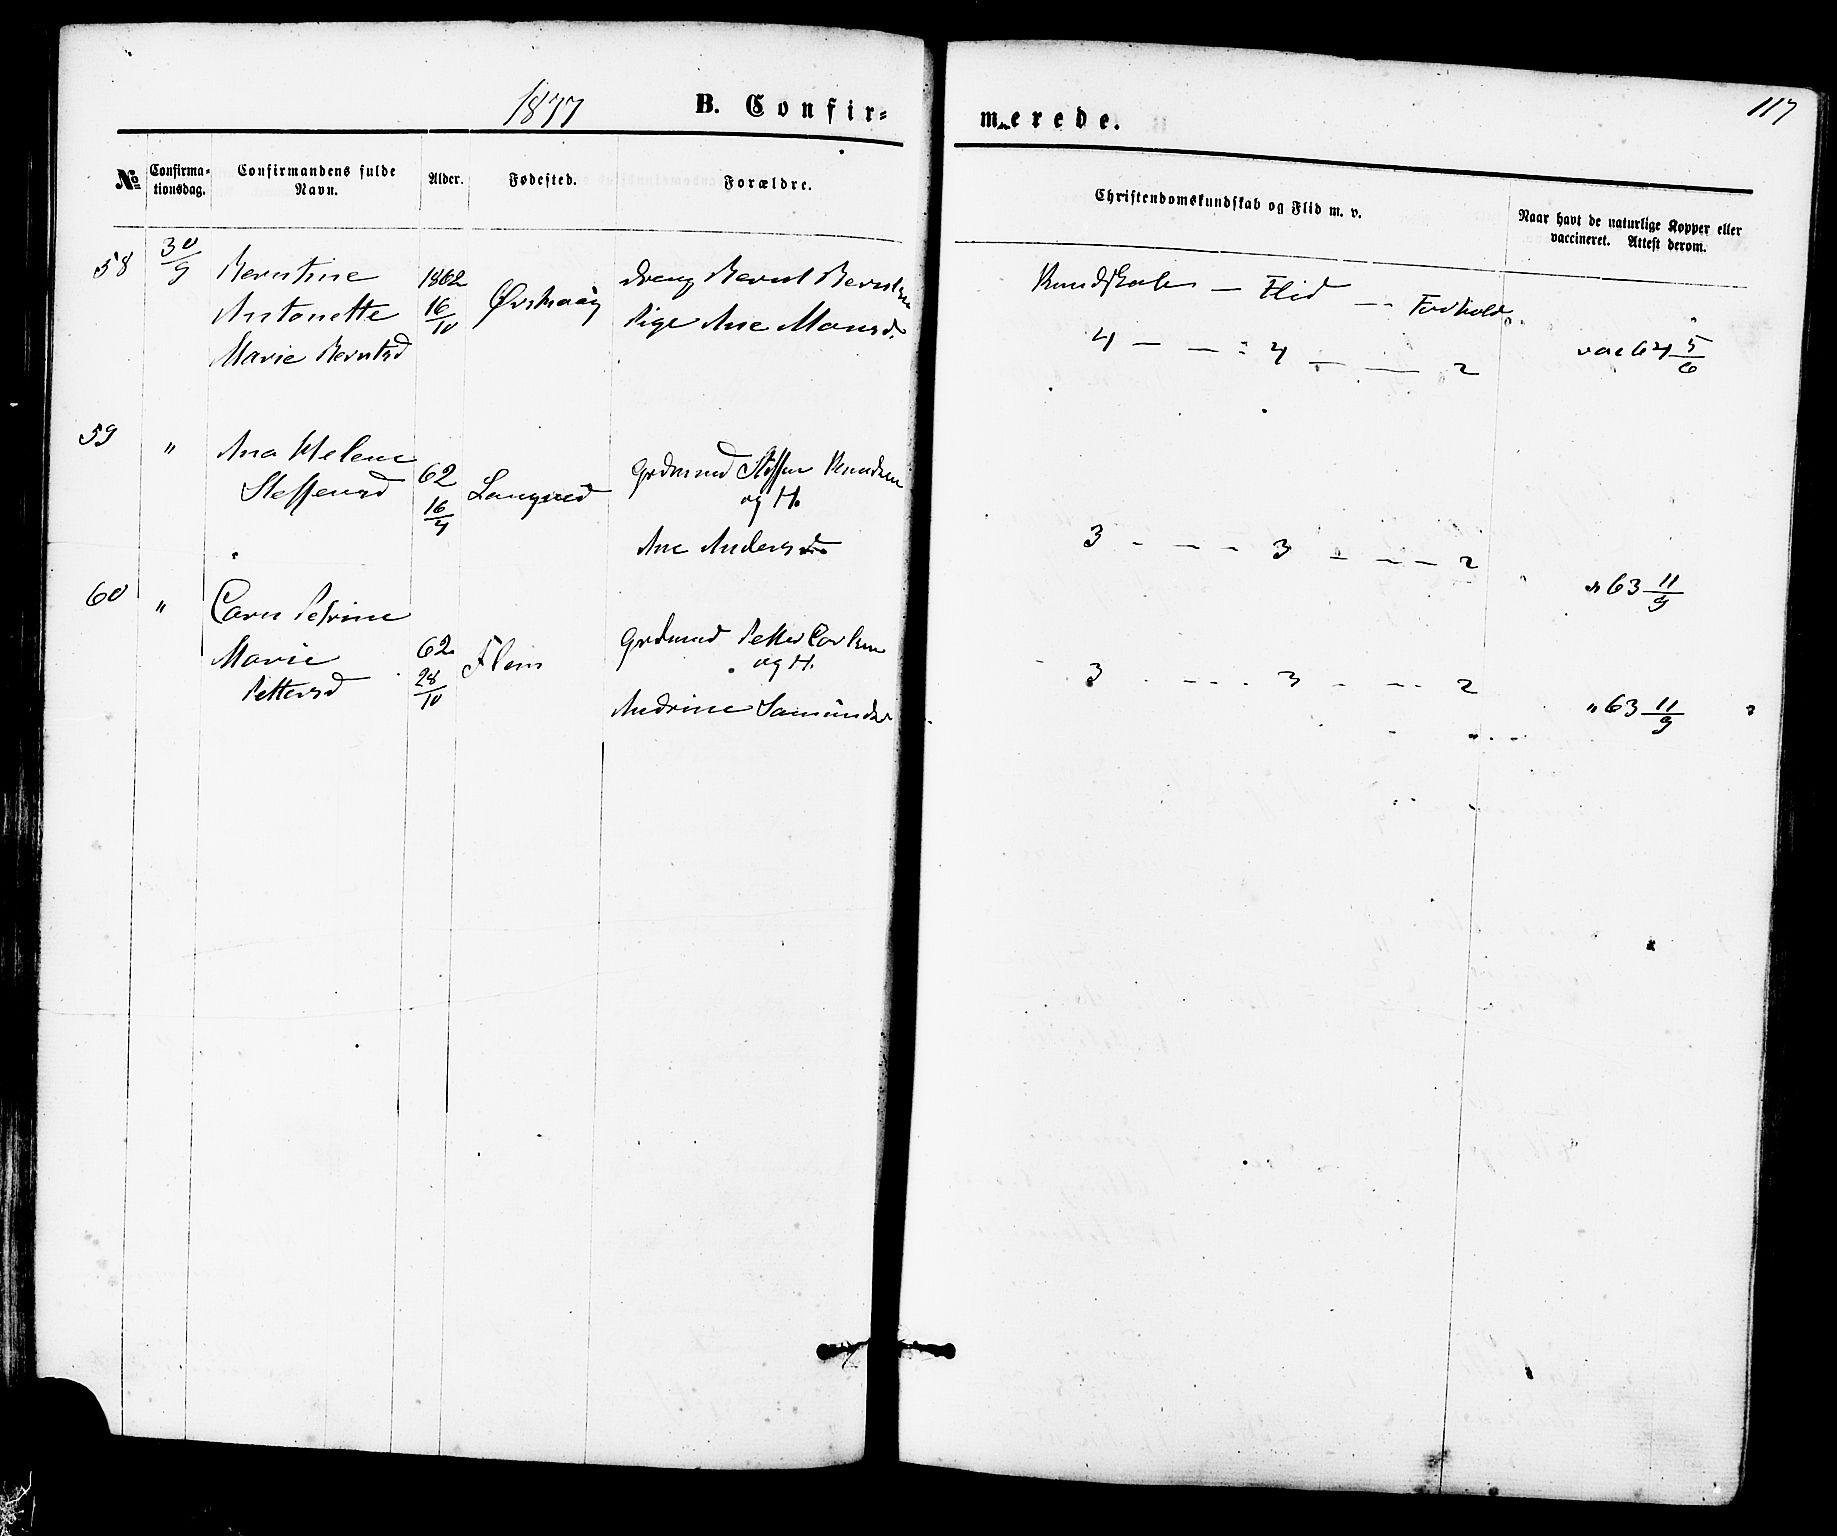 1877 B. Confir-
merede.
117
No
Confirma-
tionsdag.
Confirmandens fulde
Navn.
Alder.
Fødested.
Forældre.
Christendomskundskab og Flid m. v.
Naar havt de naturlige Kopper eller
vaccineret. Attest derom.
58
30/9
Berntine
Antonette
Marie Berntsd
1862
16/10
dreng Bernt Berntsen
Pige Ane Monsd.
Kundskab — Flid — Forhold
4 — — 4 — — 2
vac 64 5/6
59 "
Ana Helene
Steffensd
62
16/4
Grdmand Steffen Knudsen
og H.
Ane Andersd
3 - - - 3 - - - 2
" 63 11/9
60 "
Petrine
Marie
Pettersd
62
28/10
Flem
Grdmand Petter Carlsen
og H.
Andrine Samundsd
3 - - - 3 - - - 2
" 63 11/9